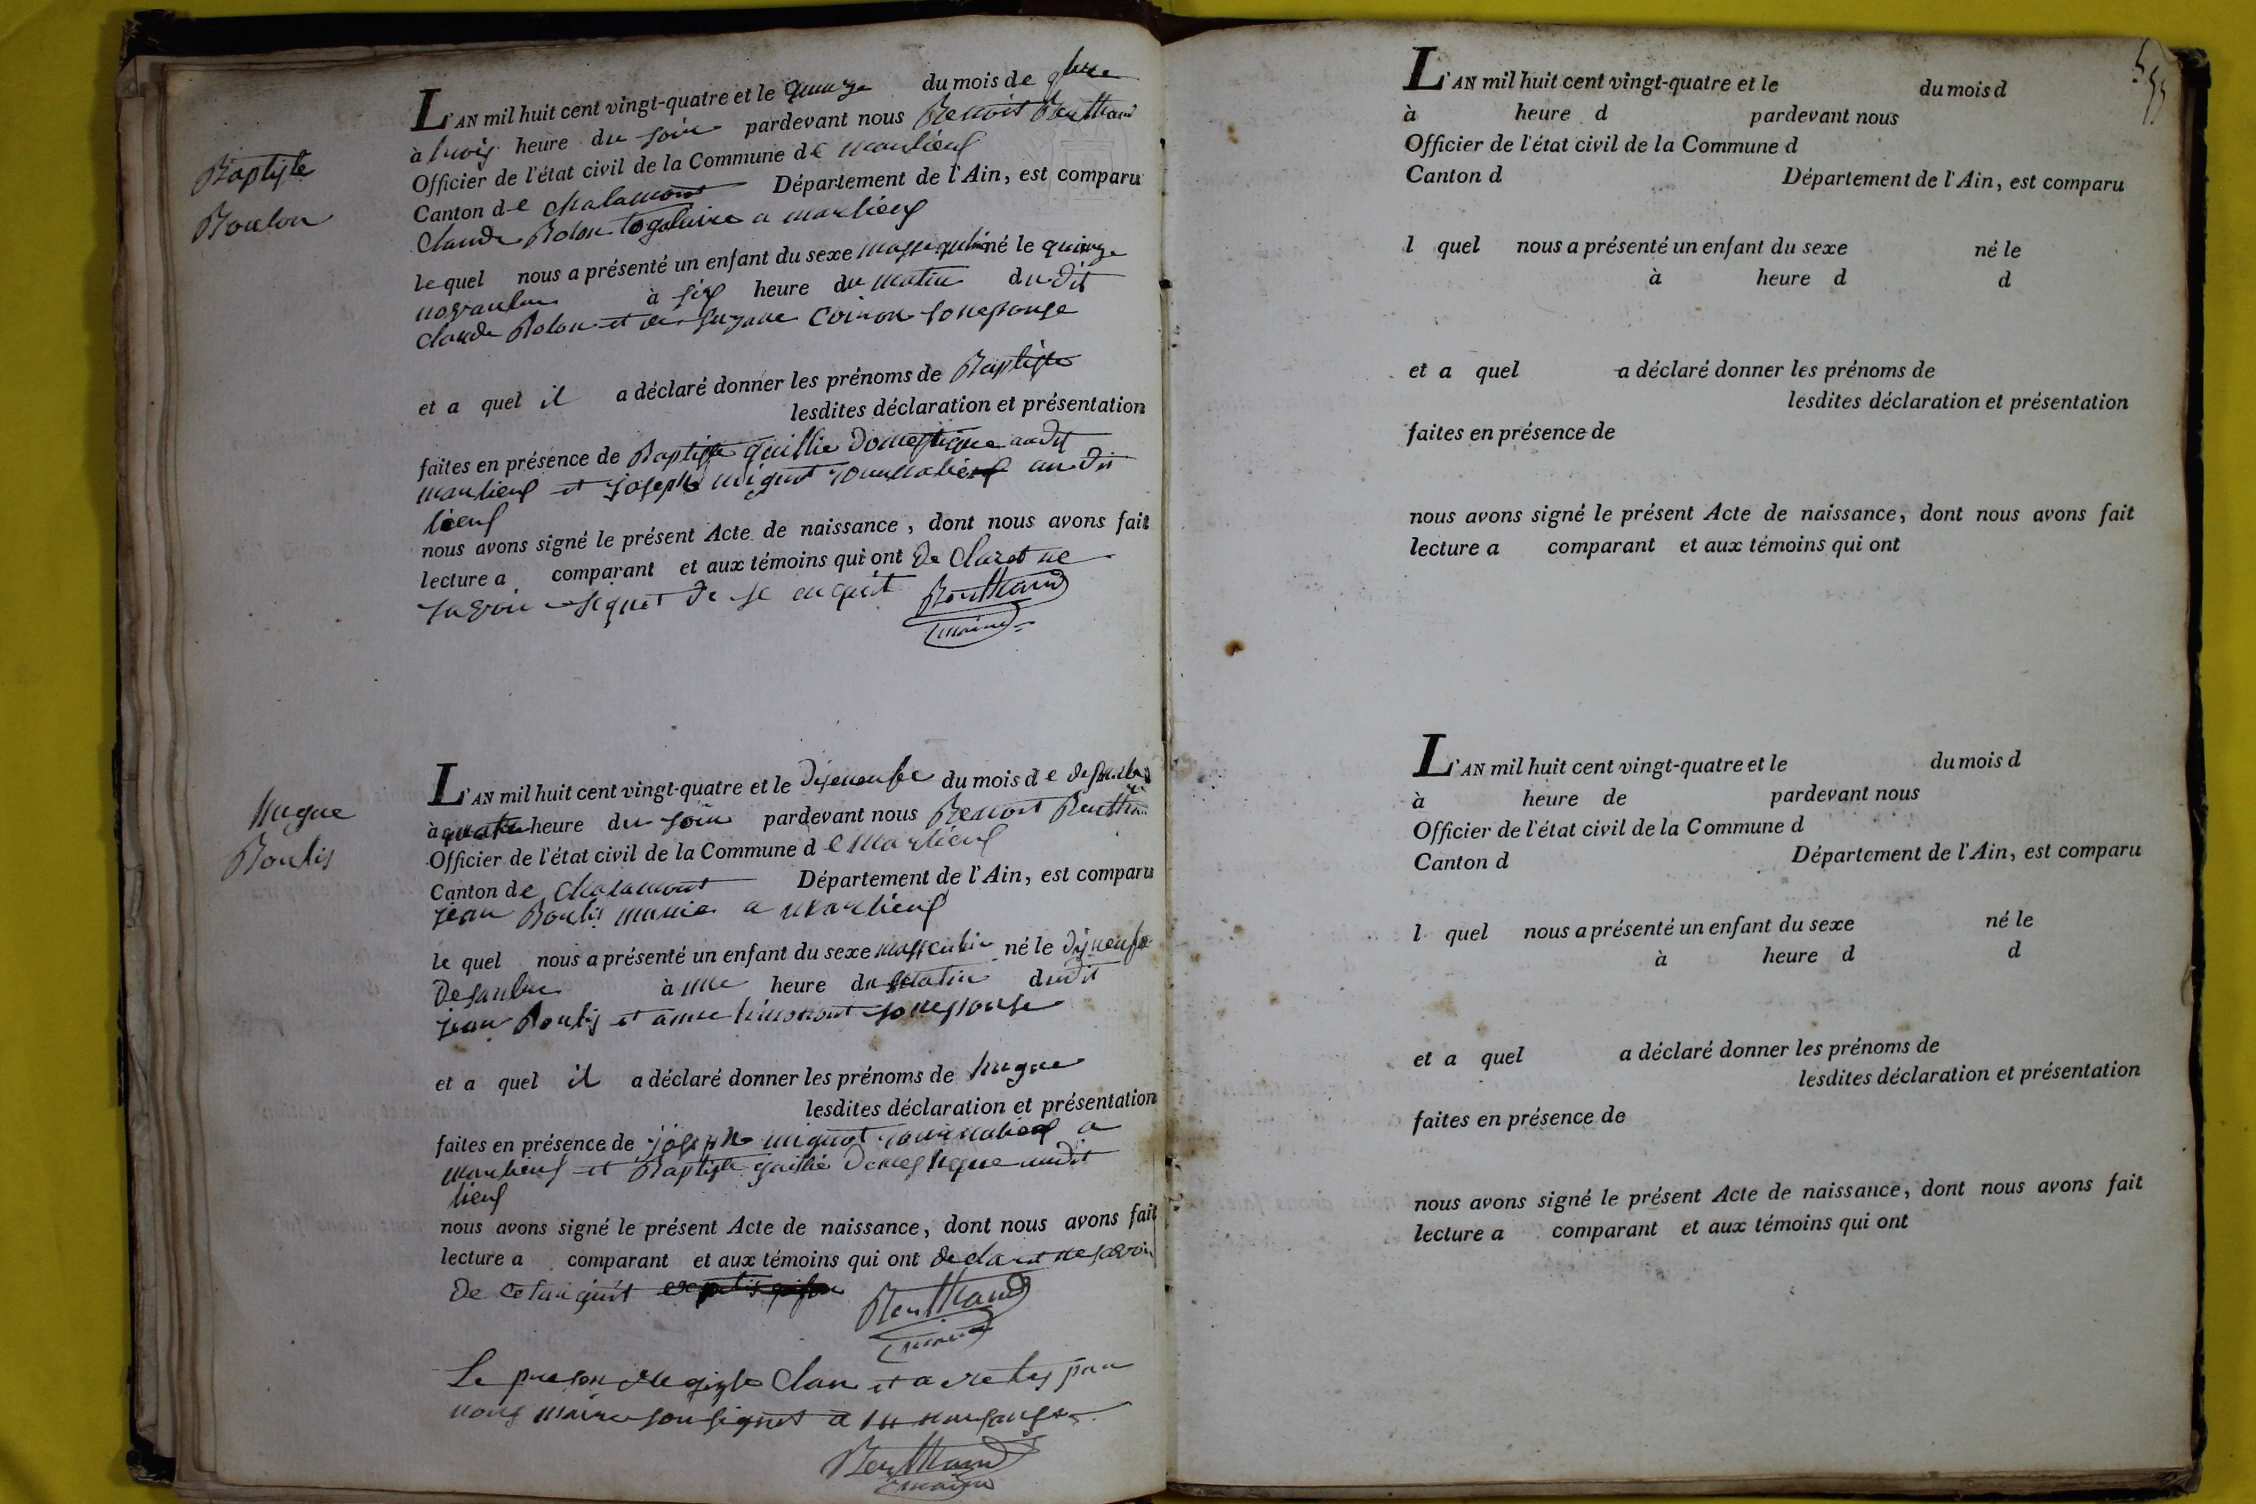 Baptiste
Boulon
L'AN mil huit cent vingt-quatre et le quinze du mois de 9bre
à trois heure du soir pardevant nous Benoist Berthand
Officier de l'état civil de la Commune de marlieux
Canton de chalamont Département de l'Ain, est comparu
Claude Bolon a marlieux
lequel nous a présenté un enfant du sexe né le quinze
à six heure du matin dudit
claude Bolon et de suzane sonespouse
et a quel il a déclaré donner les prénoms de Baptiste
lesdites déclaration et présentation
faites en présence de Baptiste domestique audit
marlieux et joseph mignot audit
lieux
nous avons signé le présent Acte de naissance, dont nous avons fait
lecture a comparant et aux témoins qui ont de claret ne
de se enquit
Berthand
maire
hugue
Boulis
L'AN mil huit cent vingt-quatre et le du mois de
à quatre heure du soir pardevant nous Benoist
Officier de l'état civil de la Commune de marlieux
Canton de chalamont Département de l'Ain, est comparu
jean Boulis a marlieux
le quel nous a présenté un enfant du sexe né le
à une heure du matin dudit
jean Boulis et anne sonespouse
et a quel il a déclaré donner les prénoms de hugue
lesdites déclaration et présentation
faites en présence de joseph mignot a
marlieux et Baptiste audit
lieux
nous avons signé le présent Acte de naissance, dont nous avons fait
lecture a comparant et aux témoins qui ont declaret ne
de
Berthand
maire
Le clau et a retes par
nous maire sousignet a
Berthand
maire
55
L'AN mil huit cent vingt-quatre et le du mois d
à heure d pardevant nous
Officier de l'état civil de la Commune d
Canton d Département de l'Ain, est comparu
l quel nous a présenté un enfant du sexe né le
à heure d d
et a quel a déclaré donner les prénoms de
lesdites déclaration et présentation
faites en présence de
nous avons signé le présent Acte de naissance, dont nous avons fait
lecture a comparant et aux témoins qui ont
L'AN mil huit cent vingt-quatre et le du mois d
à heure de pardevant nous
Officier de l'état civil de la Commune d
Canton d Département de l'Ain, est comparu
l quel nous a présenté un enfant du sexe né le
à heure d d
et a quel a déclaré donner les prénoms de
lesdites déclaration et présentation
faites en présence de
nous avons signé le présent Acte de naissance, dont nous avons fait
lecture a comparant et aux témoins qui ont